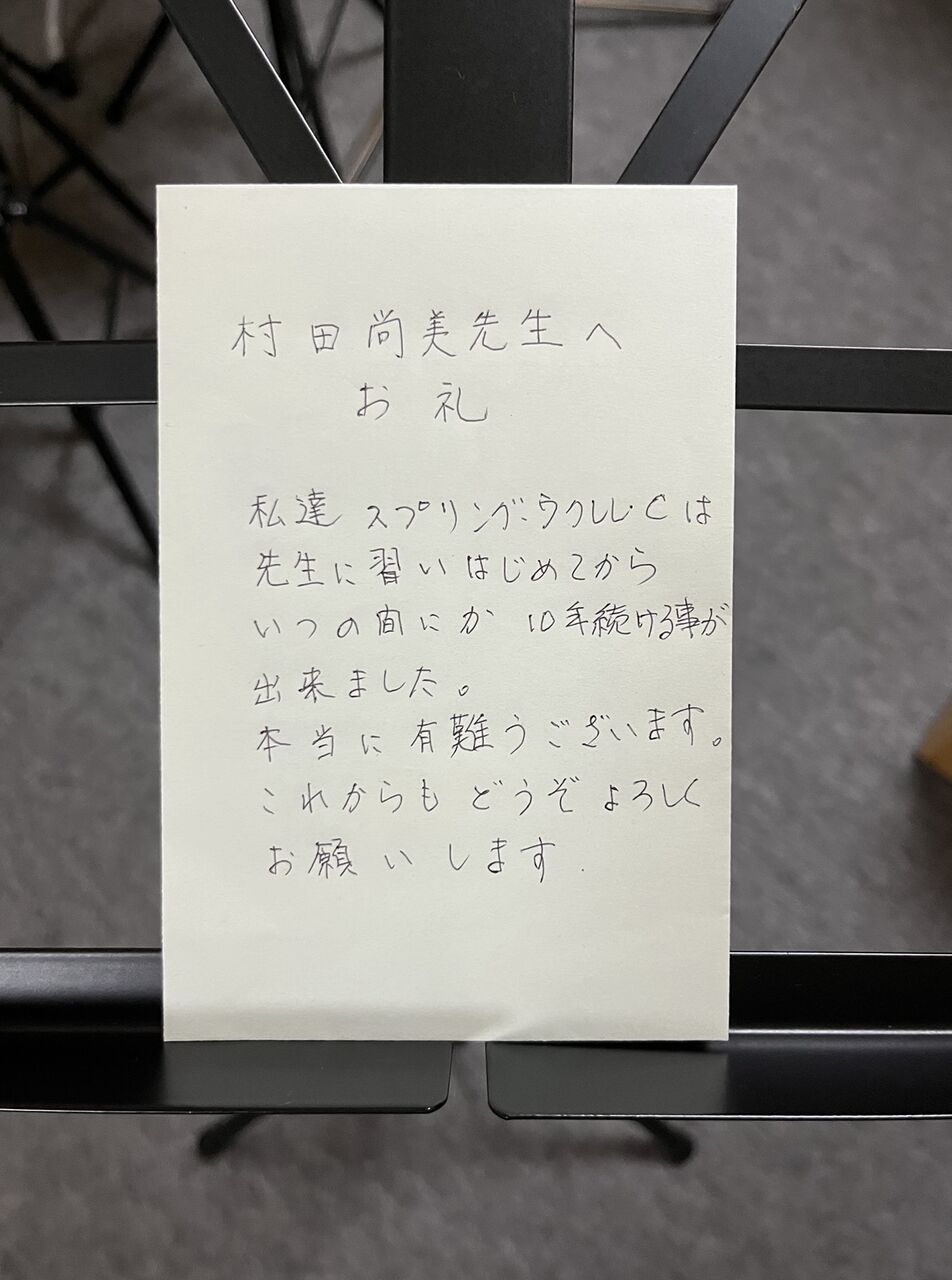 村田尚美先生へ
お礼
私達 スプリング・ウクレレ・Cは
先生に習いはじめてから
いつの間にか 10年続ける事が
出来ました。
本当に有難うございます。
これからもどうぞよろしく
お願いします.